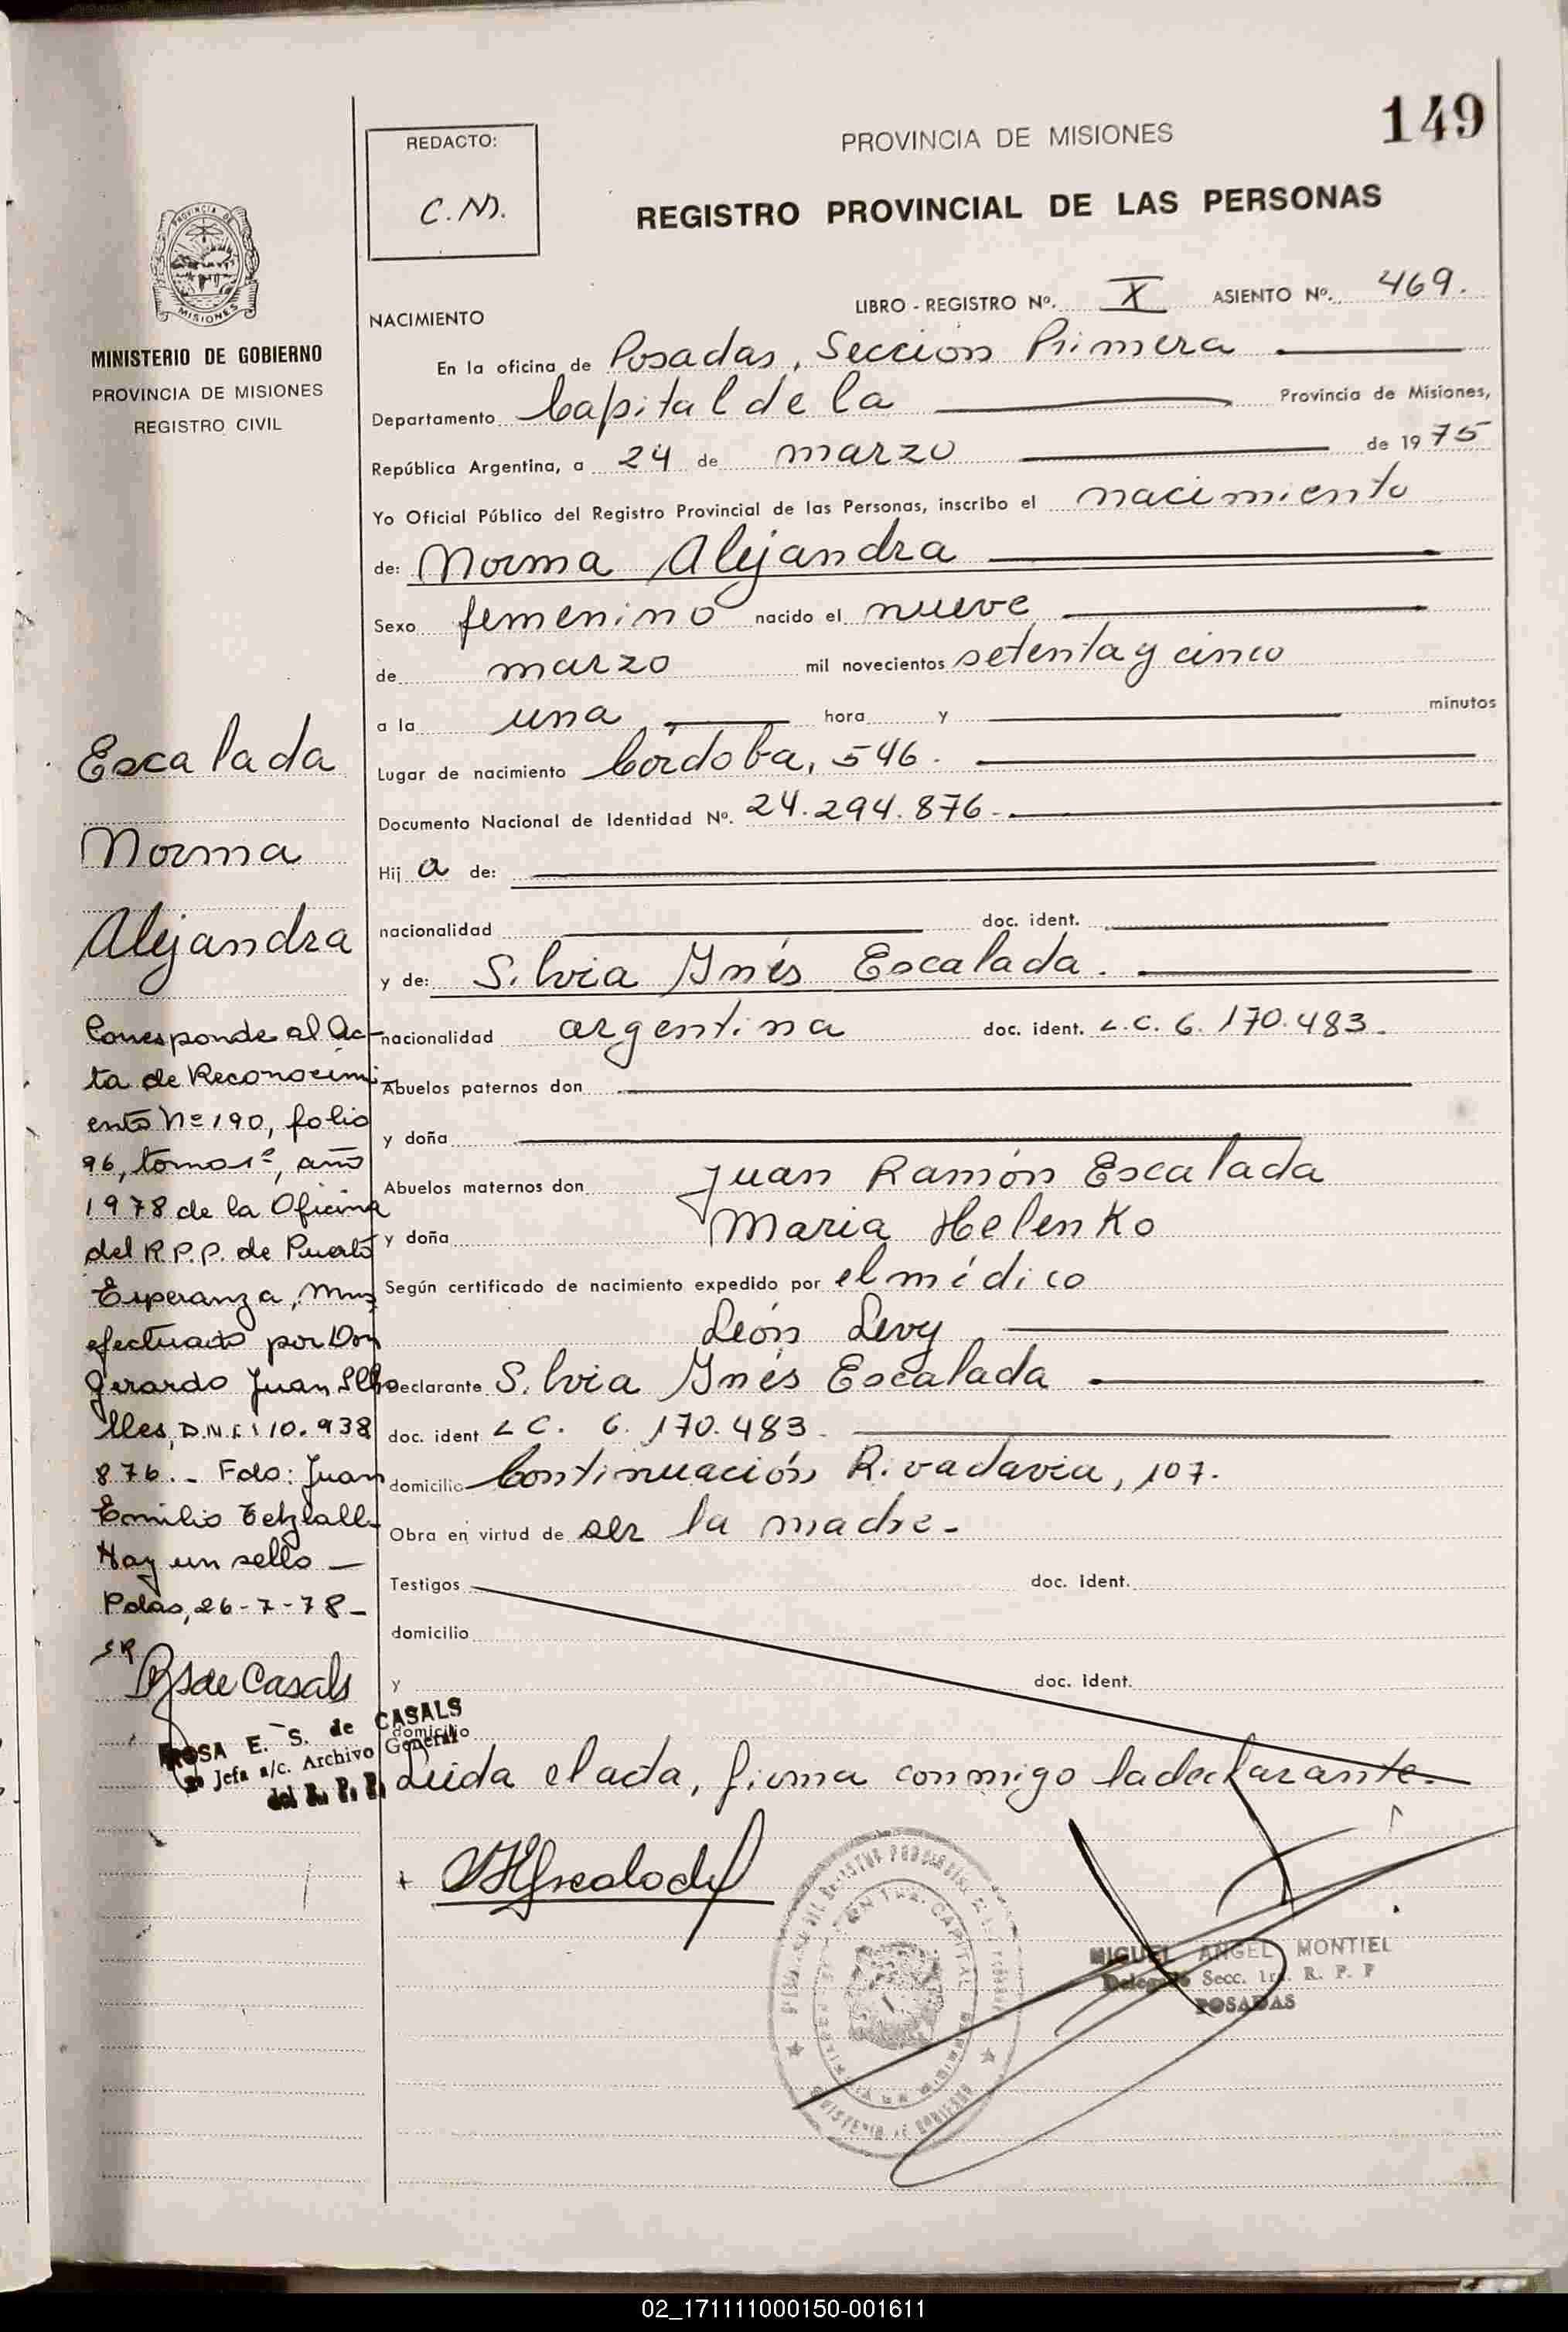 149
REDACTO:
C.M.
PROVINCIA DE MISIONES
REGISTRO PROVINCIAL DE LAS PERSONAS
PROVINCIA DE
MISIONES
MINISTERIO DE GOBIERNO
PROVINCIA DE MISIONES
REGISTRO CIVIL
LIBRO - REGISTRO Nº. X ASIENTO Nº. 469.
NACIMIENTO
En la oficina de Posadas, Sección Primera
Departamento Capital de la Provincia de Misiones,
República Argentina, a 24 de marzo de 1975
Yo Oficial Público del Registro Provincial de las Personas, inscribo el nacimiento
de: Norma Alejandra
Sexo femenino nacido el nueve
de marzo mil novecientos setenta y cinco
a la una hora y minutos
Lugar de nacimiento Córdoba, 546.
Documento Nacional de Identidad Nº. 24.294.876.
Hij a de:
nacionalidad doc. ident.
y de: Silvia Ynés Escalada.
nacionalidad argentina doc. ident. L.C. 6.170.483.
Abuelos paternos don
y doña
Abuelos maternos don Juan Ramón Escalada
y doña Maria Helenko
Según certificado de nacimiento expedido por el médico
León Levy
Declarante Silvia Ynés Escalada
doc. ident L C. 6.170.483.
domicilio Continuación Rivadavia, 107.
Obra en virtud de ser la madre.
Testigos doc. ident.
domicilio
y doc. ident.
domicilio
Leida el acta, firma conmigo la declarante.
Escalada
Norma
Alejandra
Corresponde al Ac-
ta de Reconocimi
ento Nº 190, folio
96, tomo 1º, año
1978 de la Oficina
del R.P.P. de Puerto
Esperanza, Mnes
efectuado por Don
Gerardo Juan
lles, D.N.I. 10.938
876. - Fdo: Juan
Emilio
Hay un sello -
Pdas, 26-7-78 -
SR
RSde Casals
ROSA E. S. de CASALS
Jefa a/c. Archivo General
del R. P. P.
MIGUEL ANGEL MONTIEL
Delegado Secc. 1ra. R. P. P
POSADAS
02_171111000150-001611